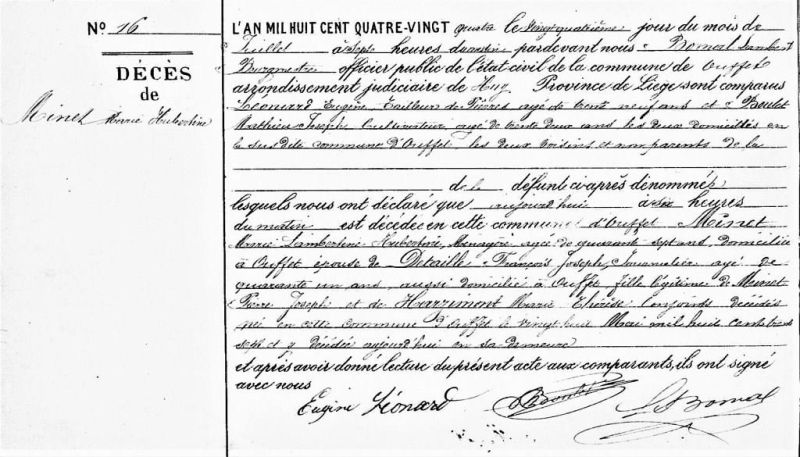 N° 16
DÉCÈS
de
Minet Marie Hubertine
L'AN MIL HUIT CENT QUATRE-VINGT quatre le vingt quatrième jour du mois de
Juillet à sept heures du matin pardevant nous Bomal Lambert
Bourgmestre officier public de l'état civil de la commune de Ouffet
arrondissement judiciaire de Huy, Province de Liege sont comparus
Léonard Eugène, Tailleur de Pierres agé de trente neuf ans et Boulet
Mathieu Joseph, Cultivateur, agé de trente deux ans les deux domiciliés en
la susdite commune d'Ouffet les deux voisins et non parents de la
de la défunt ci-après dénommée
lesquels nous ont déclaré que aujourd'hui à six heures
du matin est décédée en cette commune d'Ouffet Minet
Marie Lambertine Hubertine, Ménagère agée de quarante sept ans, domiciliée
à Ouffet épouse de Detaille François Joseph, Journalier agé de
quarante un ans, aussi domicilié à Ouffet fille légitime de Minet
Pierre Joseph et de Harzimont Marie Thérèse conjoints décédés
née en cette commune d'Ouffet le vingt huit Mai mil huit cent trente
sept et y décédée aujourd'hui en sa demeure
et après avoir donné lecture du présent acte aux comparants, ils ont signé
avec nous
Eugène Léonard Boulet L Bomal